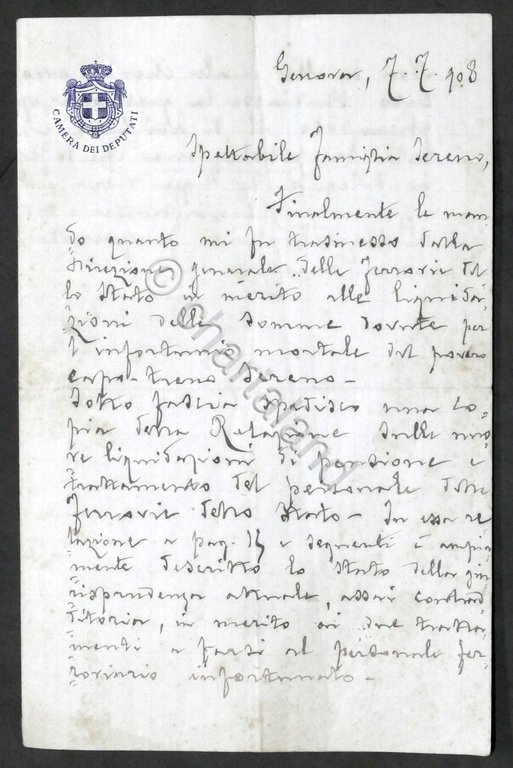 CAMERA DEI DEPUTATI
Genova, 7.7.908
Spettabile famiglia Sereno,
Finalmente le man-
do quanto mi fu trasmesso dalla
Direzione generale delle Ferrovie del-
lo Stato in merito alle liquida-
zioni delle somme dovute per
l'infortunio mortale del povero
capo-treno Sereno -
Sotto fascia spedisco una co-
pia della Relazione sulle nuo-
ve liquidazioni di pensione e
trattamento del personale delle
Ferrovie dello Stato - In essa re-
lazione a pag. 15 e seguenti è ampia-
mente descritto lo stato della giu-
rispondenza attuale, assai contrad-
ditoria, in merito ai due tratta-
menti a farsi al personale fer-
roviario infortunato -
© chartaland